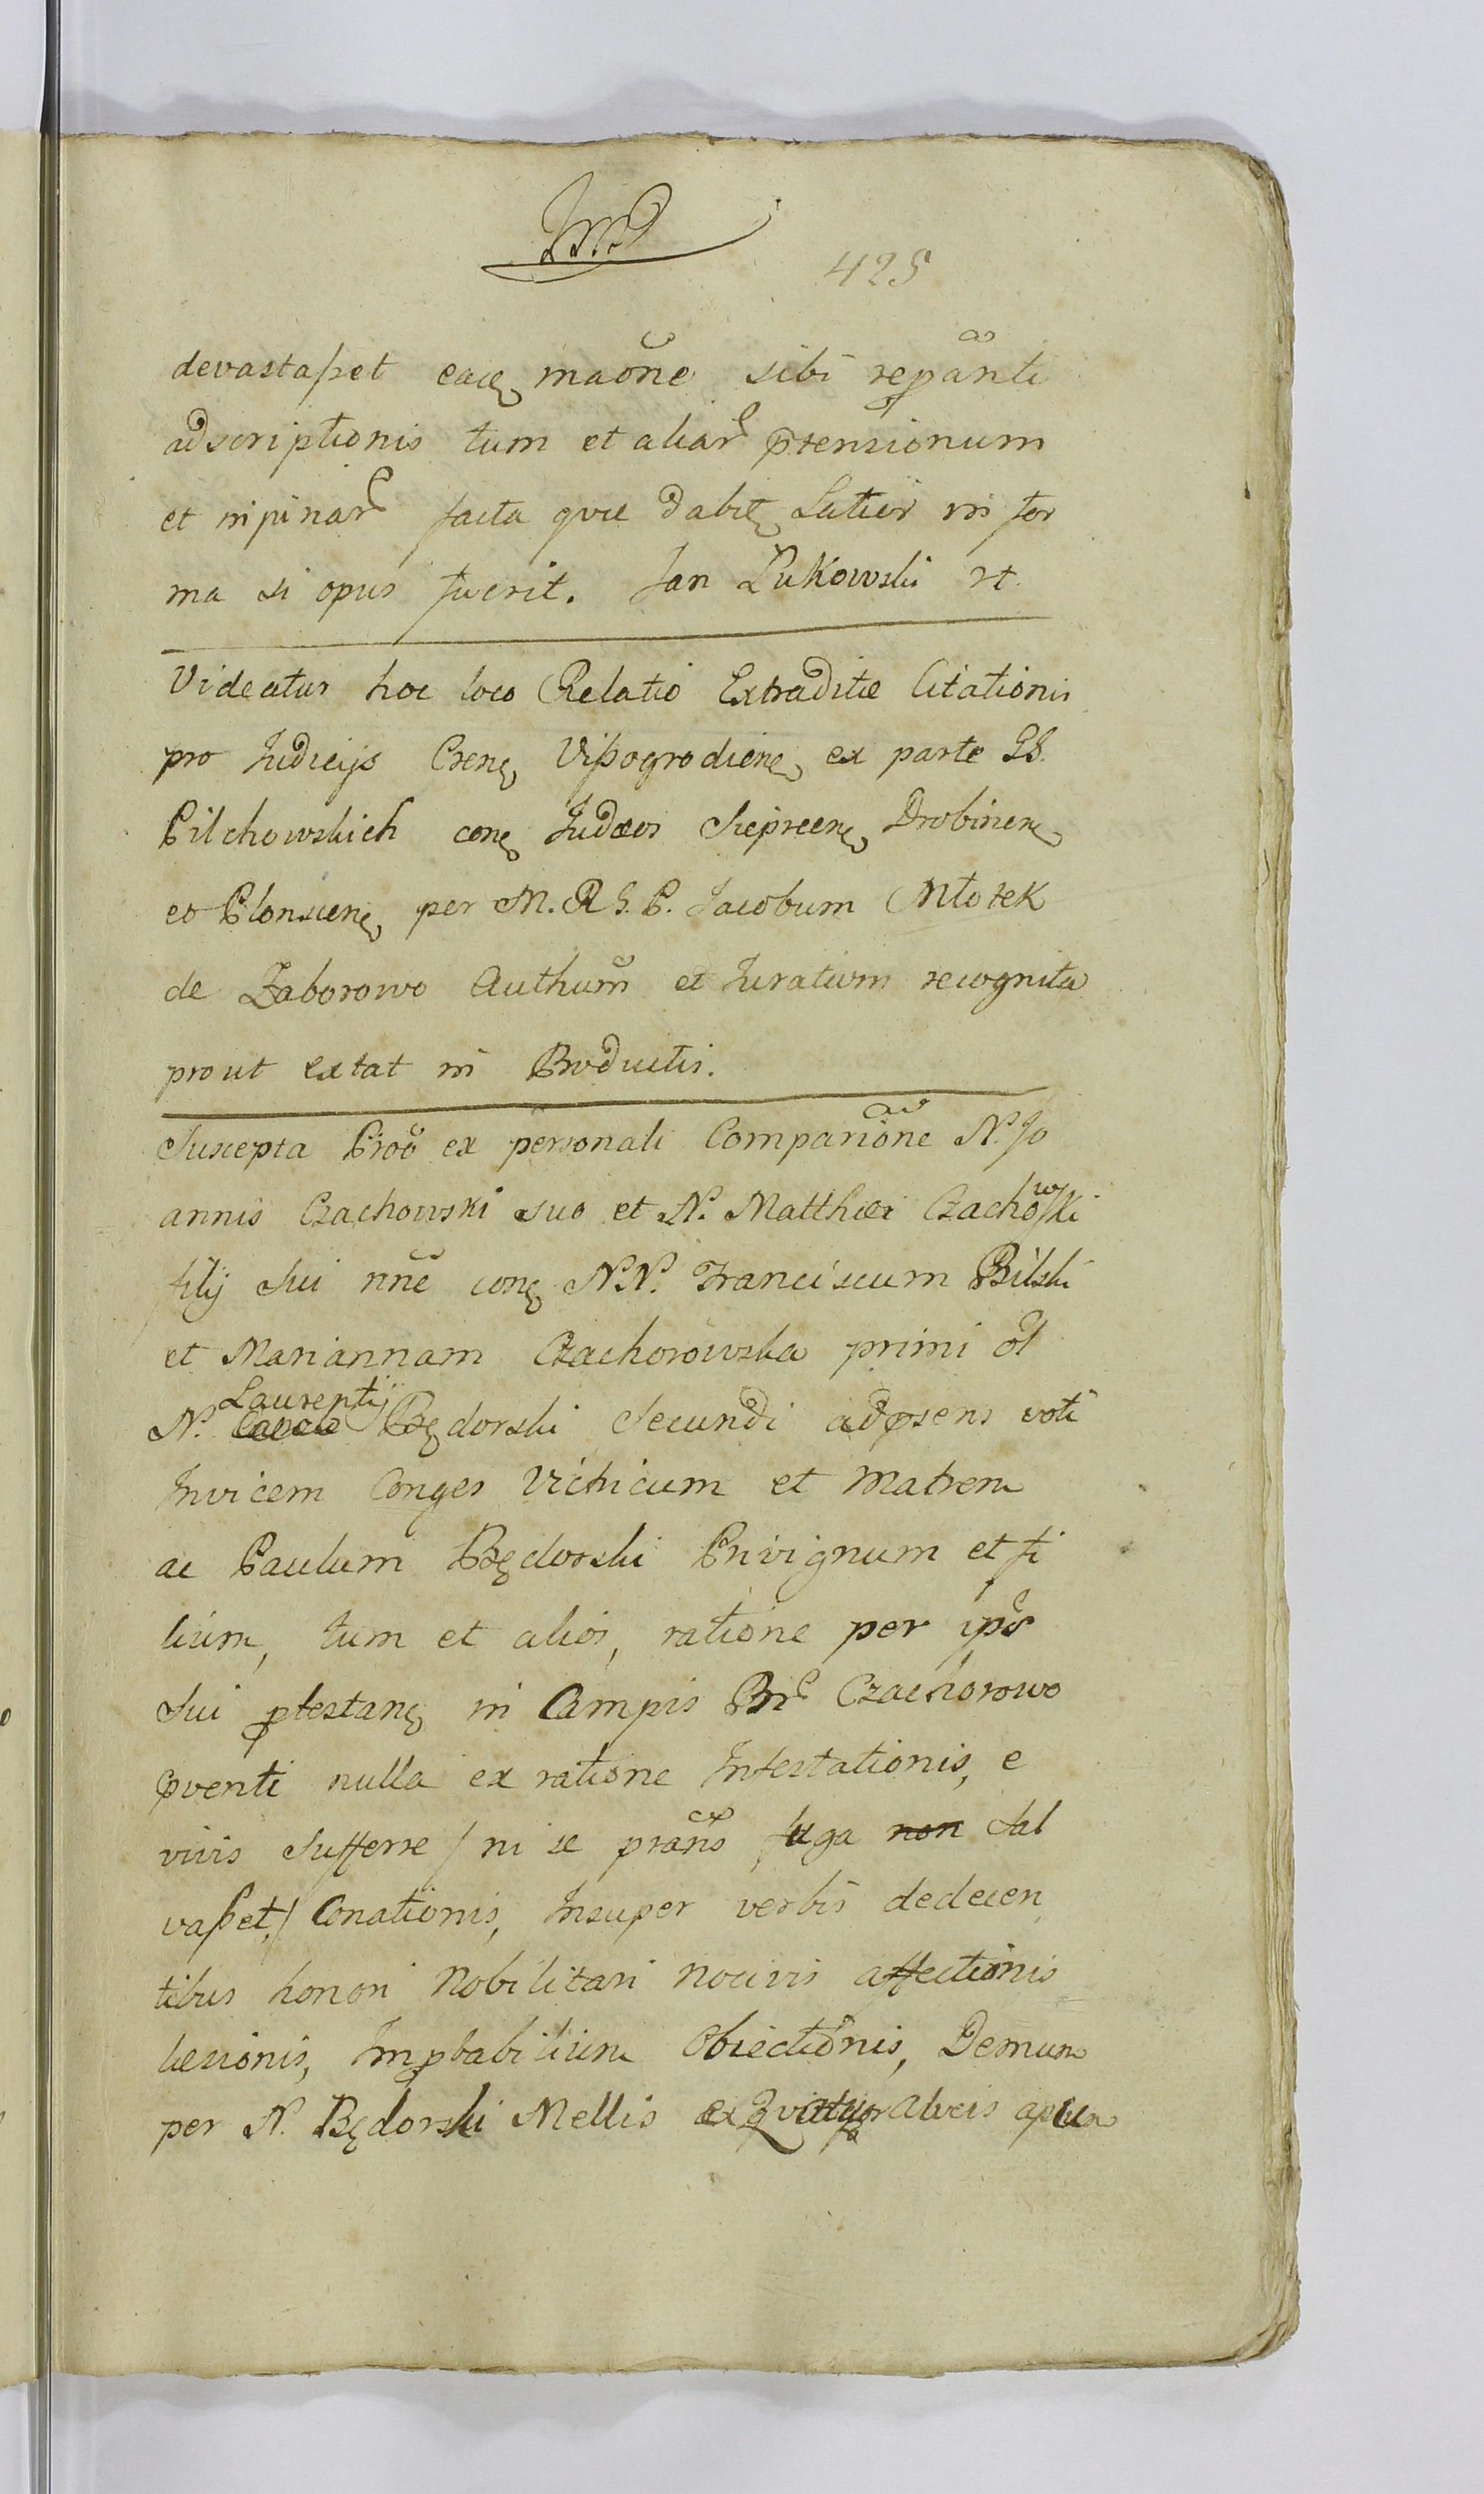 425
devastasset eaq maõne sibi repãnti
adscriptionis tum et aliar prensionum
et facta qvæ dabit Latiör in for
ma si opus fuerit. Jan Łukowski
Videatur hoc loco Relatio Extraditæ Citationis
pro Judicijs Czene Vissogrodiene ex parte GG.
Pilchowskich cone Judæos Sieprcene Drobinene
et Plonscene per M. R G. P. Jacobum Młotek
de Zaborowo Authum̃ et Juratum recognita
prout extat in Productis.
Suscepta Proõ ex personali Compariõne N. Jo
annis Czachowski suo et N. Matthiæ Czachowski
filij sui nñe cone N.N. Franciscum Bilski
et Mariannam Czachorowska primi ol
N. Laurentij Będorski Secundi ad præsens voti
Invicem Conges Victricum et Matrem
ac Paulum Będorski Privignum et fi
lium, tum et alios, ratione per ips
sui protestane in Campis Bnr Czachorowo
pventi nulla ex ratione Infestationis, e
vivis sufferre / ni se prañs fuga non sal
vasset,/ Conationis, Insuper verbis dedecen
tibus honori Nobilitari nocivis affectionis
læsionis, Improbabilium Obiectionis, Demum
per N. Będorski Mellis ex qvatuor alveis apum